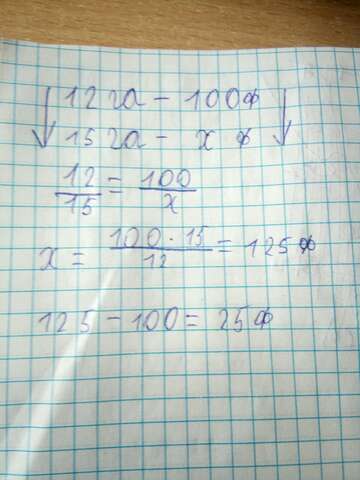 ↓ 12 га – 100 ф ↓
15 га – x ф
12/15 = 100/x
x = 100 · 15/12 = 125 ф
125 – 100 = 25 ф